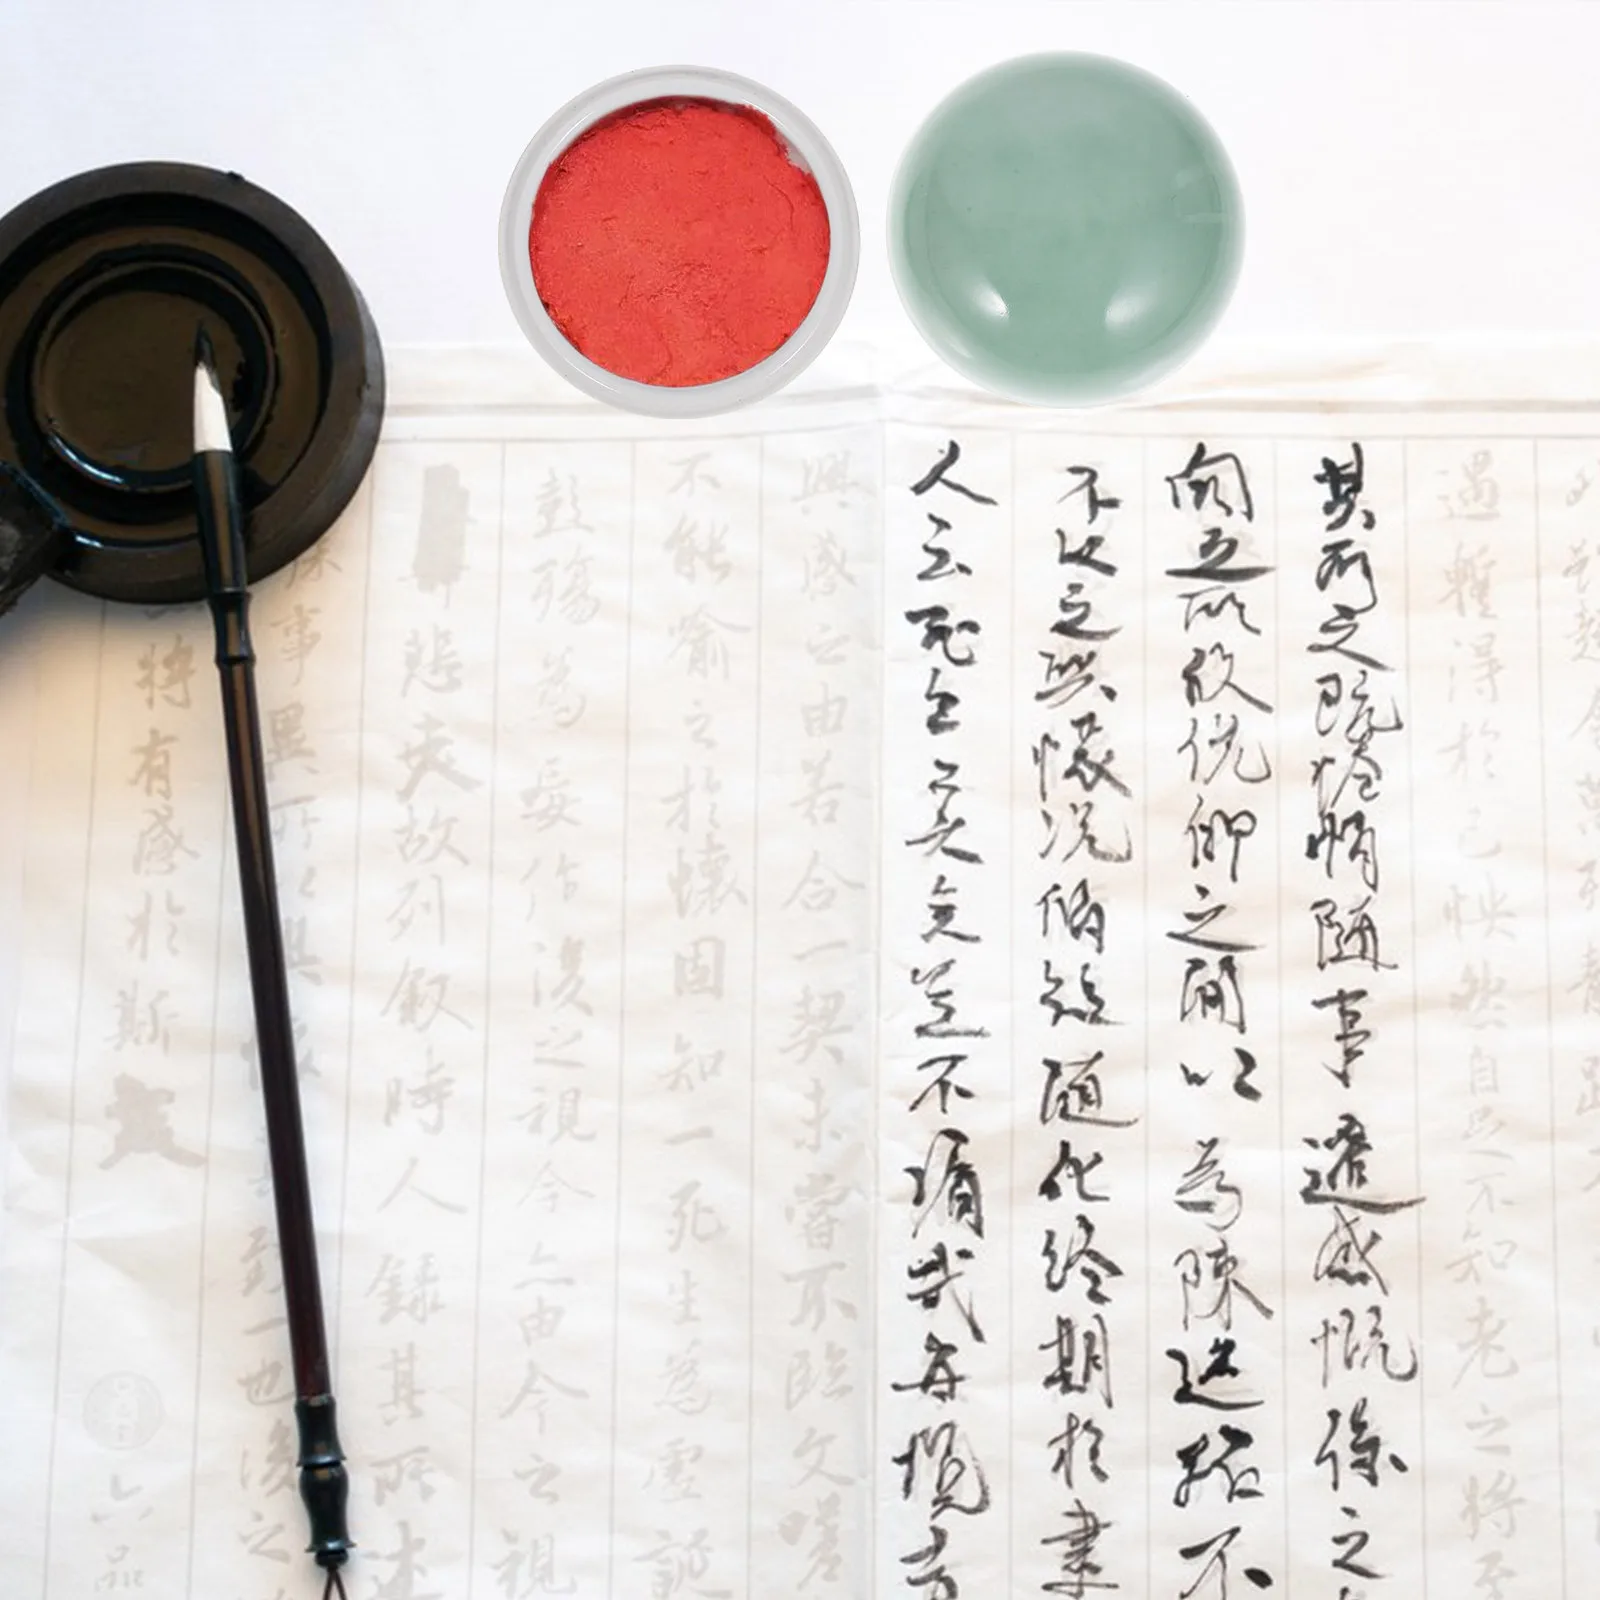 外雖趣舍萬殊靜躁不
遇暫得於己怏然自足不知老之將至
其所之既惓情隨事遷感慨係之
向之所欣俛仰之閒以為陳迹猶不
不以之興懷況脩短隨化終期於盡
人云死生亦大矣豈不痛哉每攬昔
興感之由若合一契未嘗不臨文嗟
不能喻之於懷固知一死生為虛誕
彭殤為妄作後之視今亦由今之視
悲夫故列敘時人錄其所述
殊事異所以興懷其致一也後之
將有感於斯文
六品